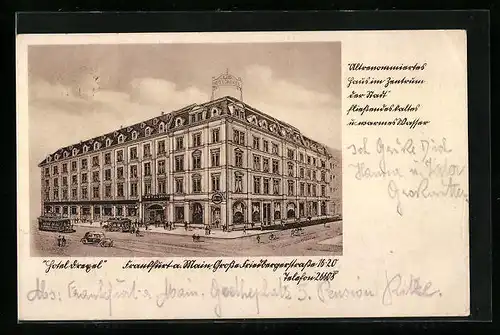 Altrenommiertes
Haus im Zentrum
der Stadt
fließendes kaltes
u. warmes Wasser
Ich Grüße Dich
Hanna u.
"Hotel Drexel" Frankfurt a. Main, Große Friedbergerstraße 18-20
Telefon 26608
Abs: Frankfurt a Main. Goetheplatz 5. Pension